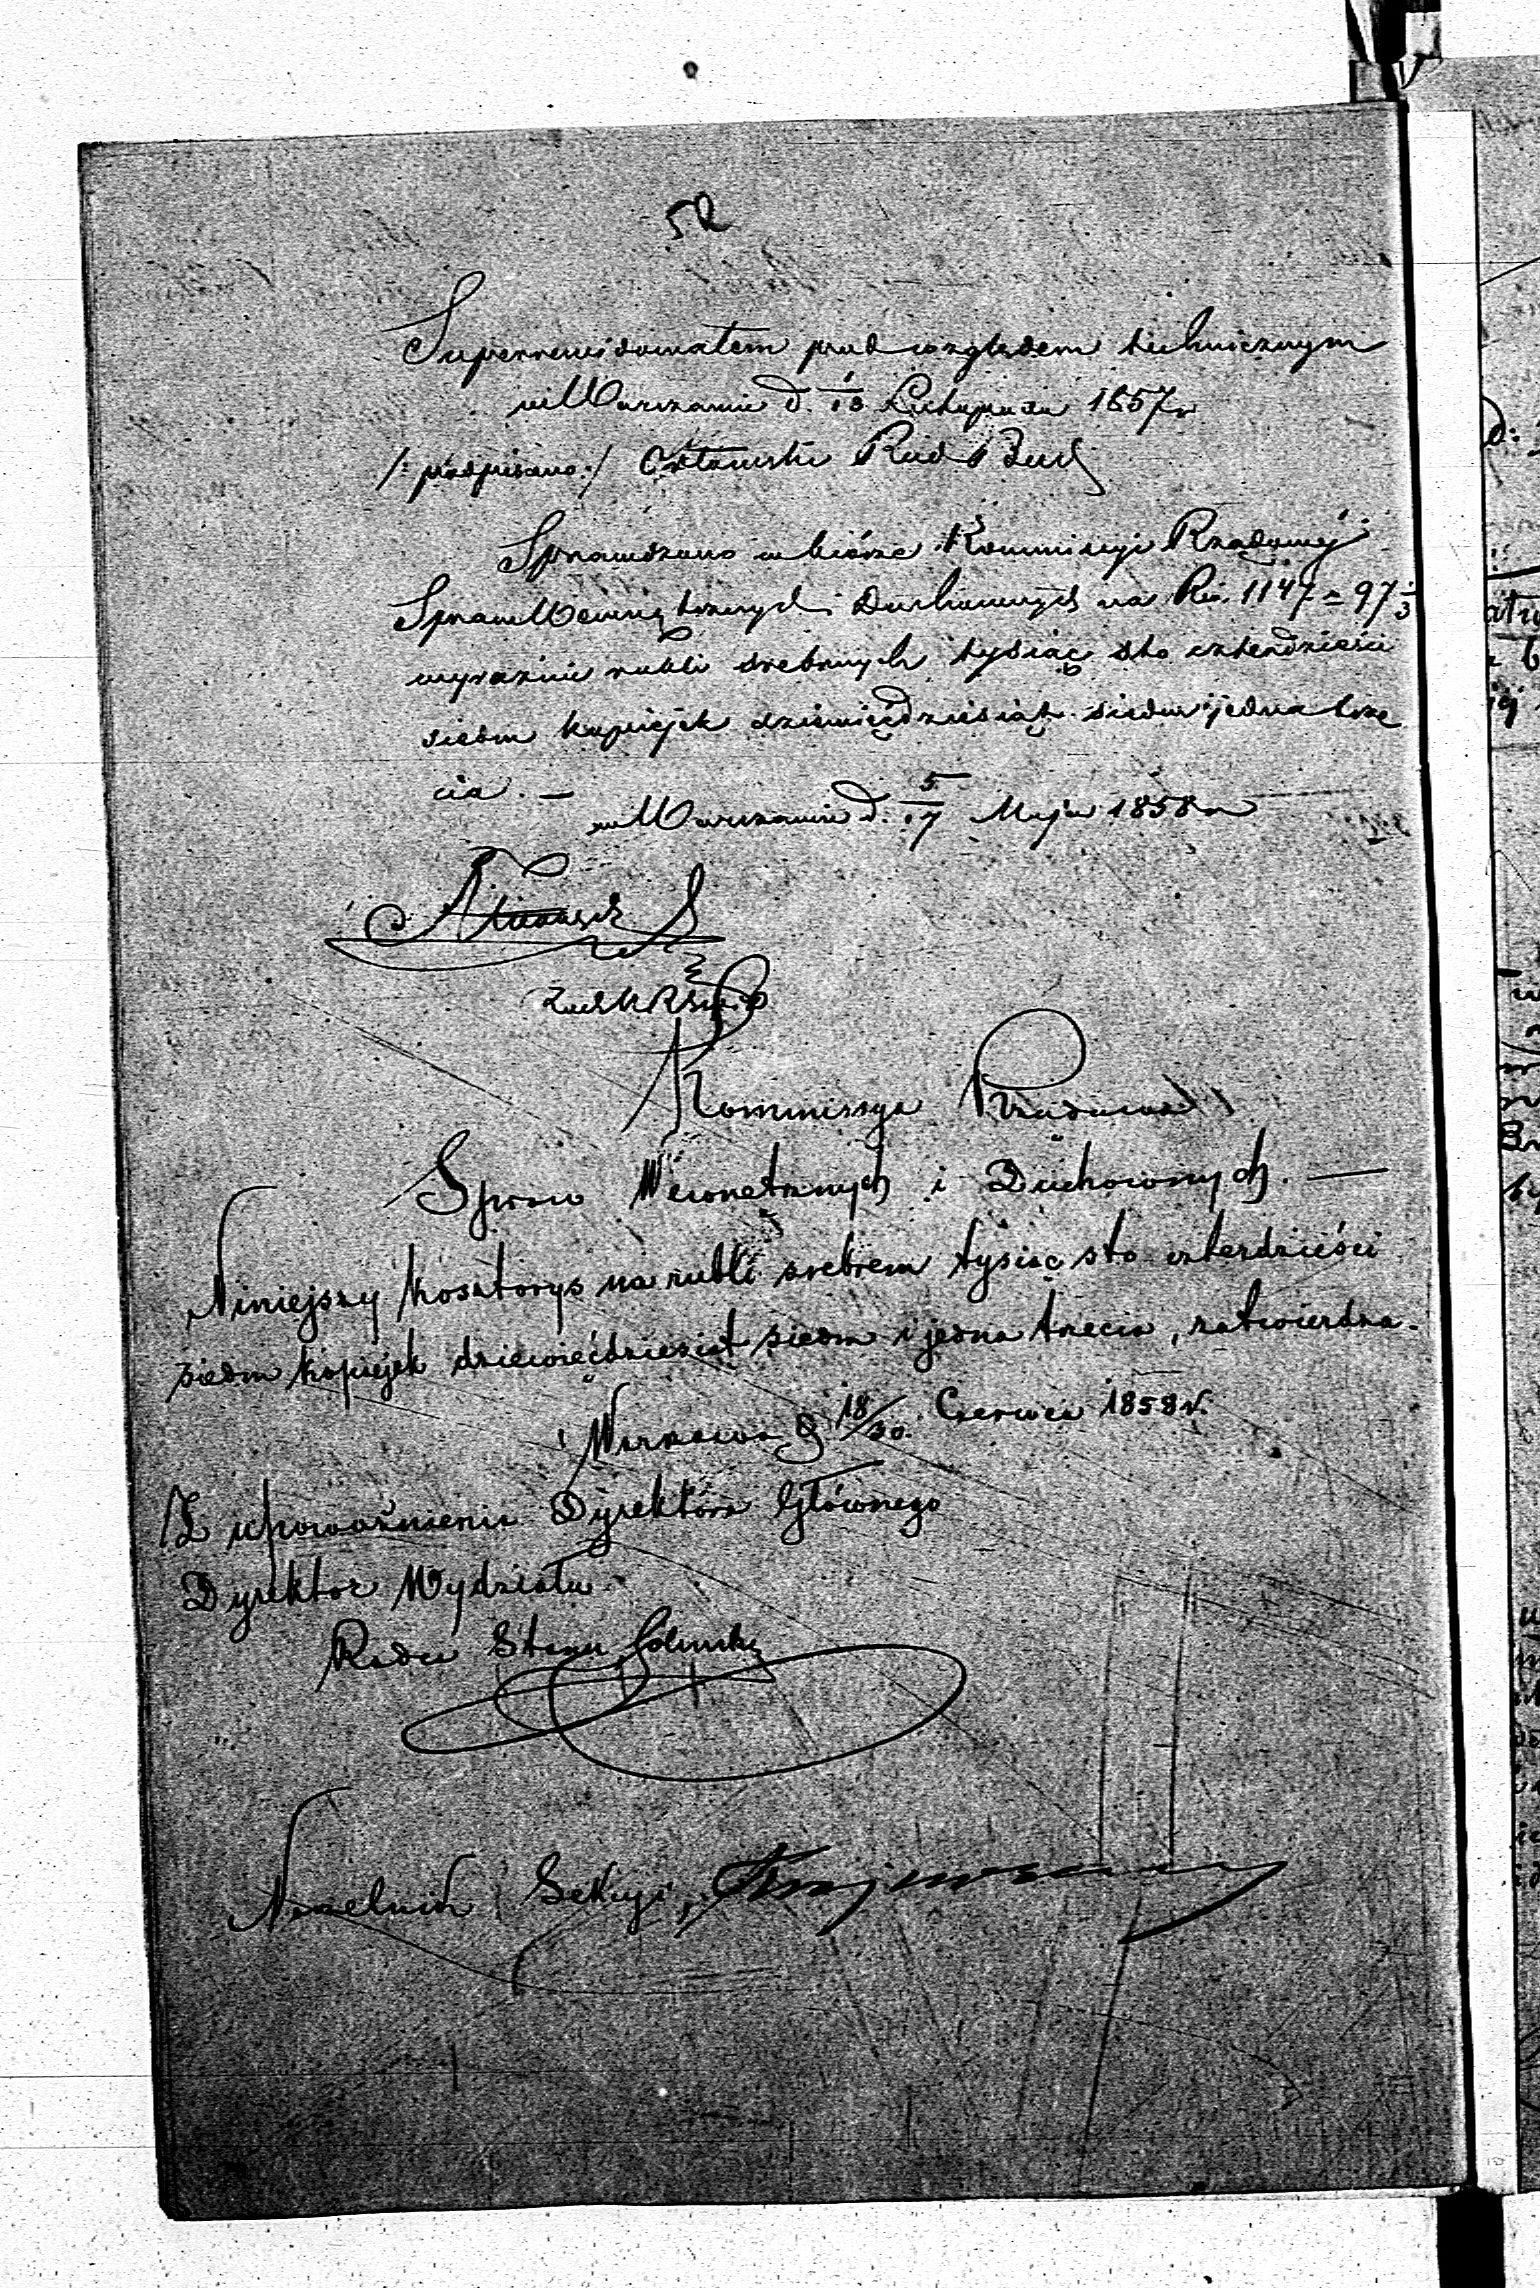 52
Superrewidowałem pod względem technicznym
w Warszawie d. 1/13 Listopada 1857 r
/: podpisano :/ Rad Bud
Sprawdzono w biórze Kommissyi Rządowéj
Spraw Wewnętrznych i Duchownych na Rs. 1147 = 97 1/3
wyraźnie rubli srebrnych tysiąc sto czterdzieści
siedm kopiejek dziewięćdziesiąt siedm i jedna trze
cia. —
w Warszawie d. 5/17 Maja 1858 r
Kommissya Rządowa
Spraw Wewnętrznych i Duchownych. —
Niniejszy kosztorys na rubli srebrem tysiąc sto czterdzieści
siedm kopiejek dziewięćdziesiąt siedm i jedna trzecia, zatwierdza.
Warszawa d 18/30 Czerwca 1858 r.
Z upoważnienia Dyrektora Głównego
Dyrektor Wydziału
Radca Stanu
Naczelnik Sekcyi,